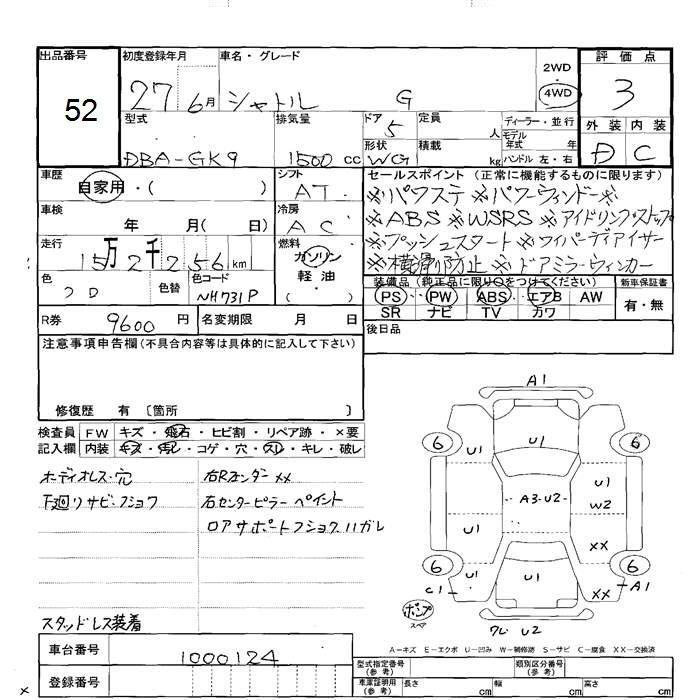 出品番号
52
初度登録年月
27 6月
車名・グレード
シャトル G
2WD
4WD
評価点
3
外装 内装
D C
型式
DBA-GK9
排気量
1500 cc
ドア
5
定員
人
形状
WG
積載
kg
ディーラー・並行
モデル年式 年
ハンドル 左・右
車歴
自家用・( )
シフト
AT
車検
年 月( 日)
冷房
AC
走行
15万2千256 km
燃料
ガソリン
軽油
( )
色
色替
色コード
NH731P
R券
9600 円
名変期限 月 日
セールスポイント (正常に機能するものに限ります)
※パワステ ※パワーウィンドー※
※ABS ※WSRS ※アイドリングストップ
※プッシュスタート ※ワイパーディアイサー
※横滑り防止 ※ドアミラーウィンカー
装備品 (純正品に限り○をつけてください)
新車保証書
PS PW ABS エアB AW
SR ナビ TV カワ
有・無
後日品
注意事項申告欄(不具合内容等は具体的に記入して下さい)
修復歴 有 〔箇所 〕
検査員 FW キズ・飛石・ヒビ割・リペア跡・×要
記入欄 内装 キズ・汚レ・コゲ・穴・スレ・キレ・破レ
オーディオレス・穴
下廻りサビ・フショク
右Rフェンダー XX
右センターピラー ペイント
ロアサポートフショクハガレ
スタッドレス装着
車台番号
1000124
登録番号
A1
6 U1 U1 6
U1
A3・U2
W2
U1
XX
6 U1 U1 6
C1
XX
A1
ポンプ
スペア
ワレ U2
A-キズ E-エクボ U-凹み W-補修跡 S-サビ C-腐食 XX-交換済
型式指定番号
(参考)
類別区分番号
(参考)
車庫証明用
(参考)
長さ cm 幅 cm 高さ cm